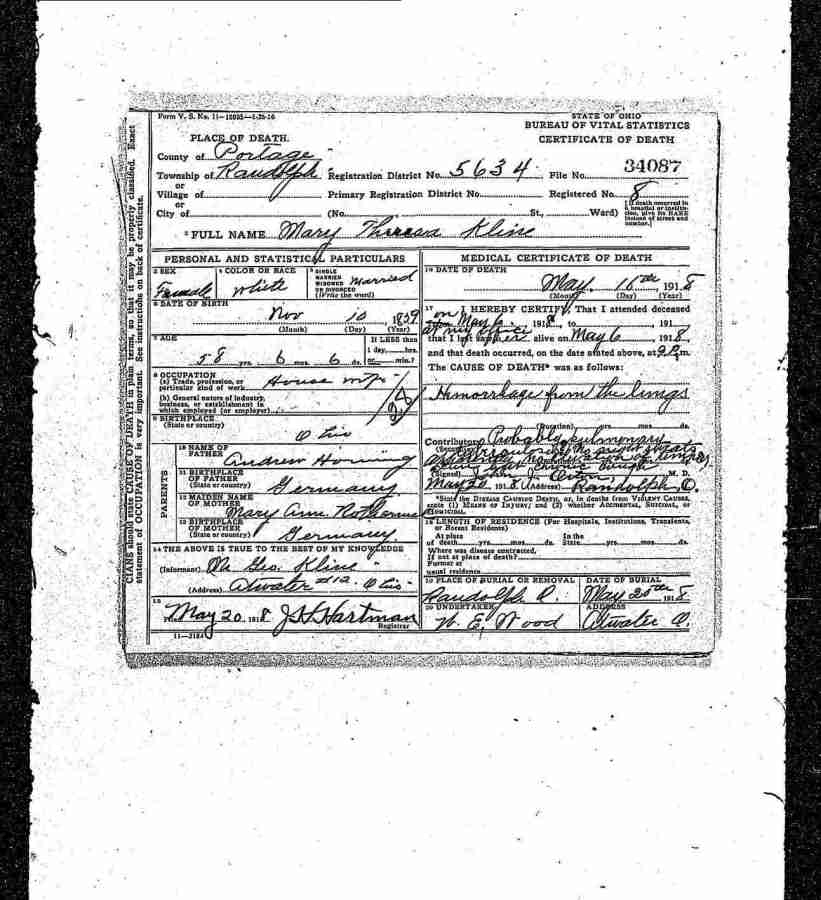 Form V. S. No. 11—10935—1-26-16
STATE OF OHIO
BUREAU OF VITAL STATISTICS
CERTIFICATE OF DEATH
PLACE OF DEATH.
County of Portage
Township of Randolph Registration District No. 5634. File No. 34087
or
Village of Primary Registration District No. Registered No. 8
or
City of (No. St., Ward) (If death occurred in a hospital or institution, give its NAME instead of street and number.)
2 FULL NAME Mary Theresa Kline
PERSONAL AND STATISTICAL PARTICULARS
3 SEX Female
4 COLOR OR RACE White
5 SINGLE MARRIED WIDOWED OR DIVORCED (Write the word) Married
6 DATE OF BIRTH
Nov 10 1859
(Month) (Day) (Year)
7 AGE
58 yrs. 6 mos. 6 ds.
If LESS than 1 day, hrs. or min.?
8 OCCUPATION
(a) Trade, profession, or particular kind of work House wife
(b) General nature of industry, business, or establishment in which employed (or employer)
9 BIRTHPLACE
(State or country)
Ohio
PARENTS
10 NAME OF FATHER
Andrew Horning
11 BIRTHPLACE OF FATHER
(State or country) Germany
12 MAIDEN NAME OF MOTHER
Mary Ann
13 BIRTHPLACE OF MOTHER
(State or country) Germany
14 THE ABOVE IS TRUE TO THE BEST OF MY KNOWLEDGE
(Informant) Mr Geo. Kline
(Address) Atwater #12. Ohio
15
May 20 1918 J. H. Hartman
Registrar
11—3184
MEDICAL CERTIFICATE OF DEATH
16 DATE OF DEATH
May. 16th, 1918
(Month) (Day) (Year)
17 I HEREBY CERTIFY, That I attended deceased
on May 6 1918, to 191
at my office
that I last saw her alive on May 6 1918,
and that death occurred, on the date stated above, at 9 P. m.
The CAUSE OF DEATH* was as follows:
Hemorrhage from the lungs
(Duration) yrs. mos. ds.
Contributory Probably pulmonary
tuberculosis no night sweats
chronic cough
(Signed) M. D.
May 20, 1918 (Address) Randolph, O.
*State the DISEASE CAUSING DEATH, or, in deaths from VIOLENT CAUSES, state (1) MEANS OF INJURY; and (2) whether ACCIDENTAL, SUICIDAL, or HOMICIDAL.
18 LENGTH OF RESIDENCE (For Hospitals, Institutions, Transients, or Recent Residents)
At place of death yrs. mos. ds. In the State yrs. mos. ds.
Where was disease contracted,
If not at place of death?
Former or
usual residence
19 PLACE OF BURIAL OR REMOVAL
Randolph. O.
DATE OF BURIAL
May 20th 1918
20 UNDERTAKER
W. E. Wood
ADDRESS
Atwater O.
CIANS should state CAUSE OF DEATH in plain terms, so that it may be properly classified. Exact
statement of OCCUPATION is very important. See instructions on back of certificate.